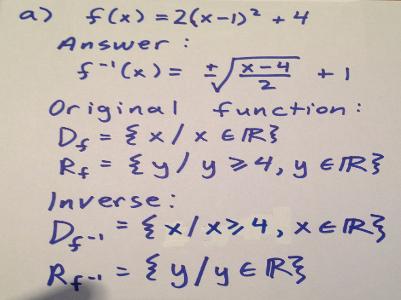 a) f(x) = 2(x-1)² + 4
Answer:
f⁻¹(x) = ±√((x-4)/2) + 1
Original function:
D_f = {x/x ∈ ℝ}
R_f = {y/y ≥ 4, y ∈ ℝ}
Inverse:
D_f⁻¹ = {x/x ≥ 4, x ∈ ℝ}
R_f⁻¹ = {y/y ∈ ℝ}